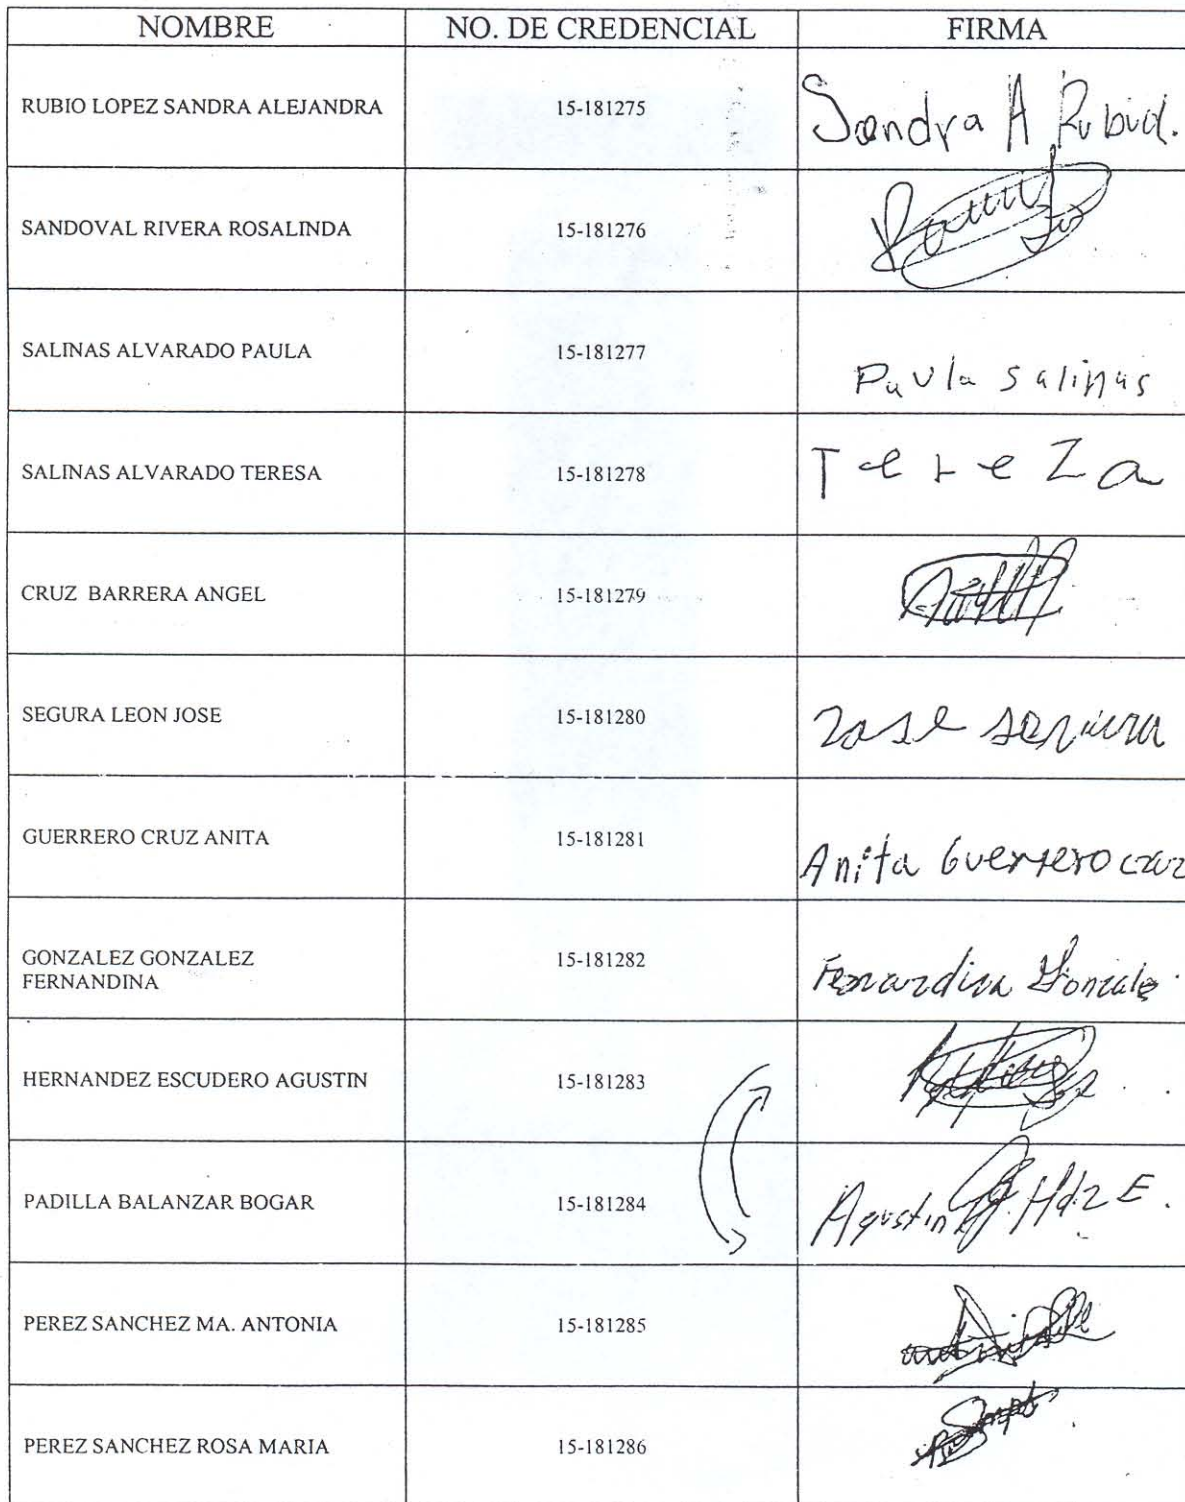 NOMBRE NO. DE CREDENCIAL FIRMA
RUBIO LOPEZ SANDRA ALEJANDRA 15-181275 Sandra A Rubio.
SANDOVAL RIVERA ROSALINDA 15-181276
SALINAS ALVARADO PAULA 15-181277 Paula Salinas
SALINAS ALVARADO TERESA 15-181278 TereZa
CRUZ BARRERA ANGEL 15-181279
SEGURA LEON JOSE 15-181280 Jose
GUERRERO CRUZ ANITA 15-181281 Anita Guerrero cruz
GONZALEZ GONZALEZ
FERNANDINA 15-181282 Fernardina Gonzalez
HERNANDEZ ESCUDERO AGUSTIN 15-181283
PADILLA BALANZAR BOGAR 15-181284 Agustin Hdz E.
PEREZ SANCHEZ MA. ANTONIA 15-181285
PEREZ SANCHEZ ROSA MARIA 15-181286